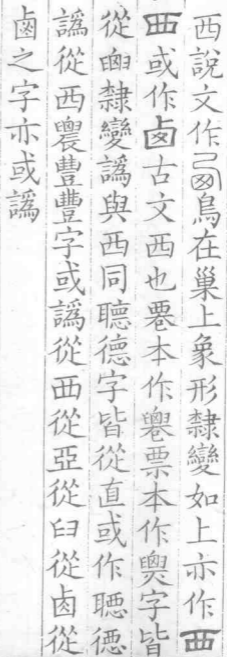 西說文作鳥在巢上象形隸變如上亦作覀
襾或作卤古文西也䙴本作票本作㷼字皆
從囟隸變譌與西同聽德字皆從直或作聼徳
譌從西豐豐字或譌從西從亞從臼從卤從
鹵之字亦或譌